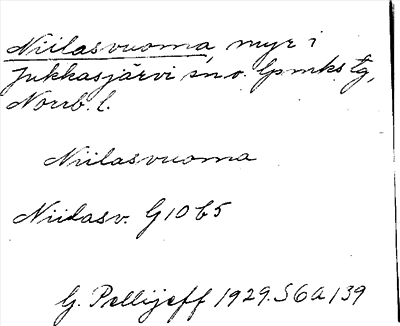 Niilasvuoma, myr i
Jukkasjärvi sn o. lpmks tg,
Norrb. l.
Niilasvuoma
Niilasv. G10 b5
G. Pellijeff 1929. S6A 139